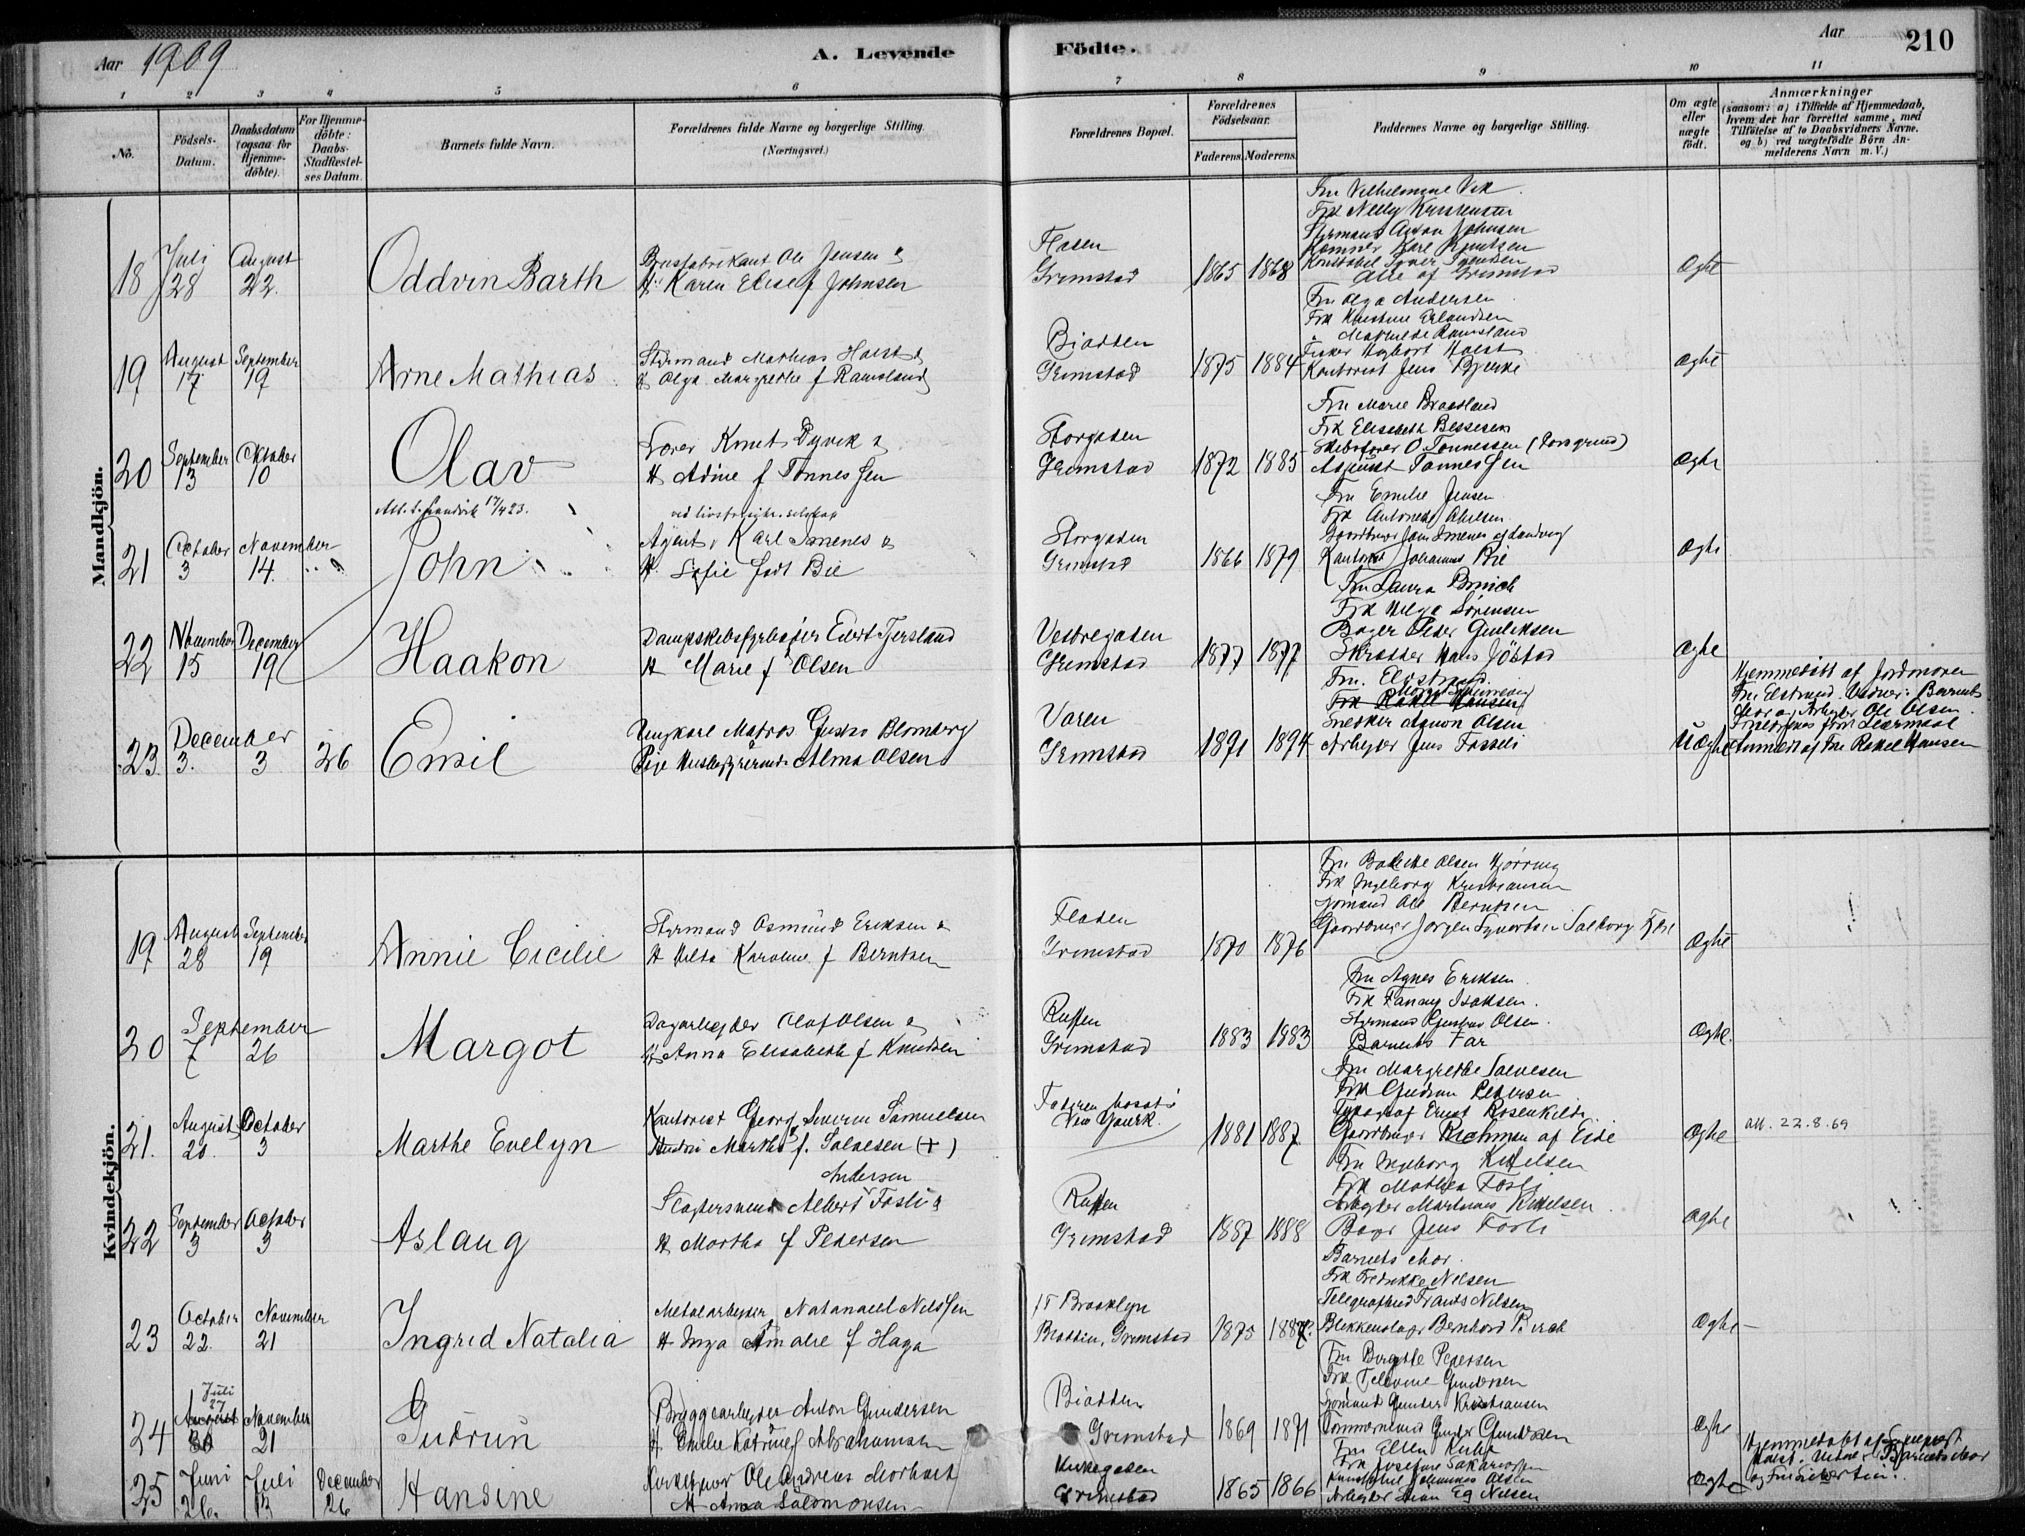 Aar 1909
A. Levende
Födte.
Aar
210
1 2 3 4 5 6 7 8 9 10 11
No.
Födsels-
Datum.
Daabsdatum
(ogsaa for
Hjemme-
döbte).
For Hjemme-
döbte:
Daabs-
Stadfæstel-
ses Datum.
Barnets fulde Navn.
Forældrenes fulde Navne og borgerlige Stilling.
(Næringsvei.)
Forældrenes Bopæl.
Forældrenes
Födselsaar.
Faderens. Moderens.
Faddernes Navne og borgerlige Stilling.
Om ægte
eller
uægte
födt.
Anmærkninger
(saasom: a) i Tilfælde af Hjemmedaab,
hvem der har forrettet samme, med
Tilföielse af to Daabsvidners Navne,
og b) ved uægtefödte Börn An-
melderens Navn m. V.)
Mandkjön.
18
Juli
28
August
22.
Oddvin Barth
Brusfabrikant Ole Jensen &
H. Karen Elise f Johnsen
Fladen
Grimstad
1865
1868
Fru Vilhelmine Vik
Frk Nelly Kristensen
Styrmand Anton Johnsen
Karl Knutsen
Konstabel Syver Svendsen
Alle af Grimstad
Ægte
19
August
17
September
19
Arne Mathias
Styrmand Mathias Holst &
H Olga Margrethe f Ramsland
Biodden
Grimstad
1875
1884
Fru Olga Andersen
Frk Kristine Erlandsen
" Mathilde Ramsland
Fisker Hagbart Holst
Kontorist Jens Bjerke
Ægte
20
September
13
Oktober
10
Olav
Lærer Knut Dyvik &
H Adine f Tønnessen
Storgaden
Grimstad
1872
1885
Fru Marie Braatland
Frk Elisabeth Bessesen
Skibsfører O Tønnessen (Porsgrund)
August Tønnessen
Ægte
21
October
3
November
14.
Att. t. Landvik 17/4 23.
John
ved livsforsikr. selskap
Agent Karl Imenes &
H. Sofie født Bie
Storgaden
Grimstad
1866
1879
Fru Emilie Jensen
Frk Antonette Abelsen
Gaardbruger Jens Imenes af Landvig
Kontorist Johannes Bie
Ægte
22
November
15
December
19
Haakon
Dampskibsfyrbøder Evert Tjersland
H Marie f Olsen
Vestregaden
Grimstad
1877
1877
Fru Laura Brinch
Frk Helga Sørensen
Bager Peder Gunleksen
Skrædder Hans Jøstad
Ægte
23.
December
3.
3
26
Emil
Ungkarl Matros Gustav Blomberg
Pige Husbestyrerinde Alma Olsen
Voren
Grimstad
1871
1894
Fru. Elvstrand.
Frk Rakel Hansen
Snedker Agnon Olsen
Arbeider Jens Fosseli
Uægte
Hjemmedøbt af Jordmoren
Fru Elstrand. Vidner: Barnets
Mor og Arbeider Ole Olsen.
Anmeldt af Fru Rakel Hansen
Kvindekjön.
19
August
28
September
19
Annie Cicilie
Styrmand Osmund Eriksen &
H Hilda Karoline f Berntsen
Fladen
Grimstad
1870
1876
Fru Bolette Olsen Hjørring
Frk Ingeborg Kristiansen
Sjømand Ole Berntsen
Gaardbruger Jørgen Syvertsen Salborg
Ægte
20
September
7
26
Margot
Dagarbeider Olaf Olsen &
H. Anna Elisabeth f Knudsen
Grimstad
1883
1883
Fru Agnes Eriksen
Frk Fanny Isaksen.
Styrmand Gustav Olsen.
Barnets Far
Ægte.
21.
August
20
October
3
Marthe Evelyn
Kontorist Georg Severin Samuelsen
Hustru Marthe f. Salvesen (+)
Faderen bosat i
New York
1881
1887
Fru Margrethe Salvesen
Frk Gudrun Pedersen
Typograf Ernst Rosenkilde
Gaardbruger Richman af Eide
Ægte
att. 22.8.69
22
September
3
October
3
Aslaug
Andersen
Slagtersvend Albert Fosli &
H Martha f Pedersen
Grimstad
1887
1888
Fru Ingeborg Kittelsen
Frk Mathea Fosli
Arbeider Martinus Kittelsen
Bager Jens Fosli
Ægte
23
October
22.
November
21
Ingrid Natalia
Metalarbeider Natanael Nilssen
H Inga Amalie f Haga
Brooklyn
Biodden, Grimstad
1875
Barnets Mor.
Frk Fredrikke Nilsen
Telegrafbud Frants Nilsen
Blikkenslager Bernhard Birch
Ægte
24
Juli
27
August
30
November
21
Gudrun
Bryggearbeider Anton Gundersen
H Emilie Katrine f Abrahamsen
Biodden
Grimstad
1869
1871
Fru Birgitte Pedersen
Frk Gundersen
Sjømand Gunder Kristiansen
Tømmermand Gunder Gundersen
Ægte
25
Juni
26.
Juli
13
December
26
Hansine
Ole Andreas Morholt
H Anna Salomonsen
Kirkegaden
Grimstad
1865
1866
Fru Ellen Kuhn
Frk Josefine Sakariassen
Johannes Olsen
Nilsen
Ægte
Hjemmedøbt af Sogneprest
Barnets Mor